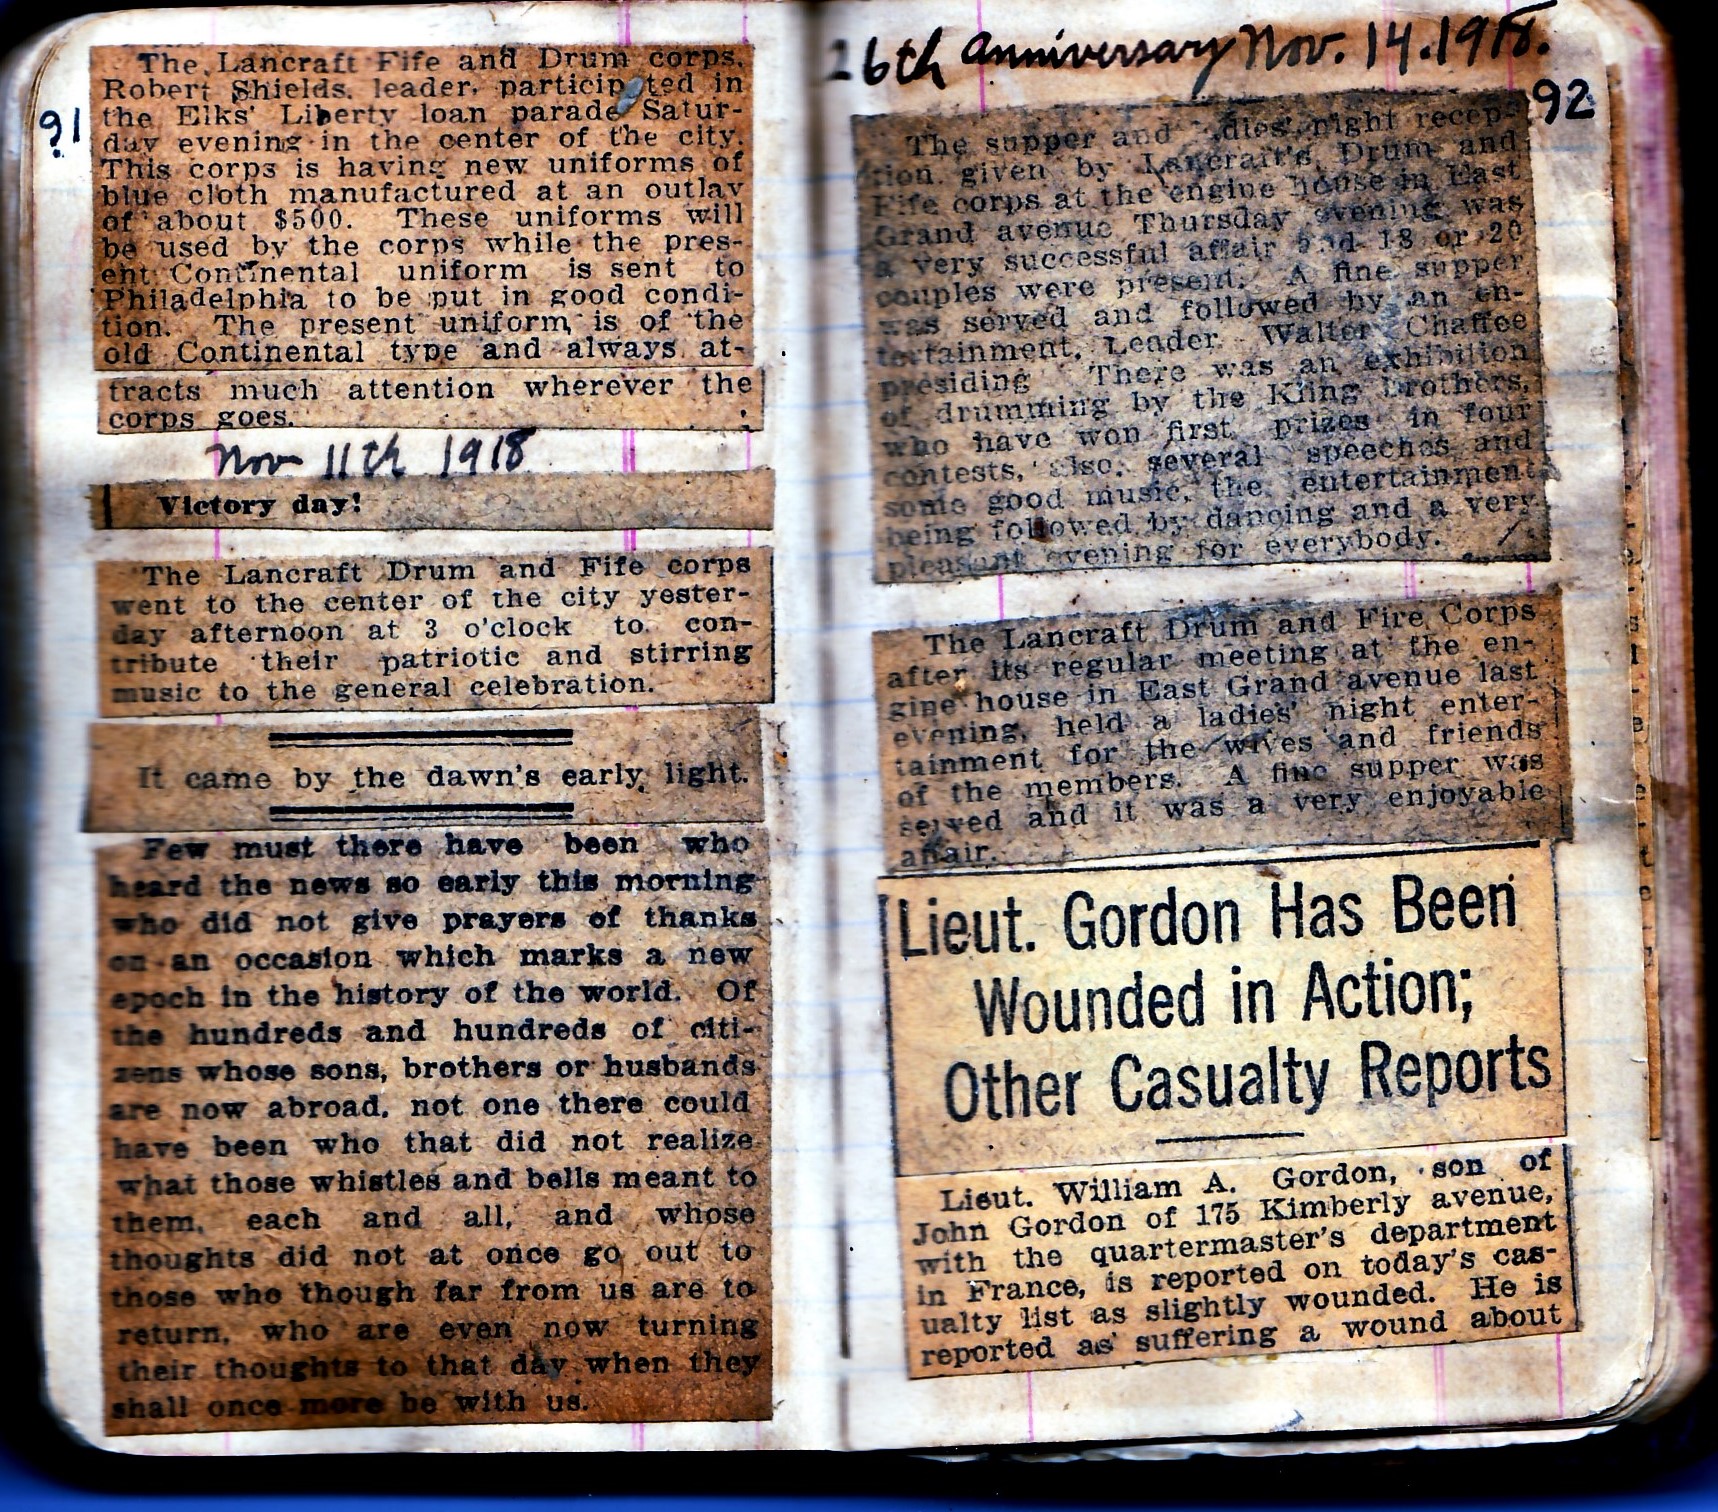 91
The Lancraft Fife and Drum corps,
Robert Shields, leader, particip ted in
the Elks' Liberty loan parade Satur-
day evening in the center of the city.
This corps is having new uniforms of
blue cloth manufactured at an outlay
of about $500. These uniforms will
be used by the corps while the pres-
ent Continental uniform is sent to
Philadelphia to be put in good condi-
tion. The present uniform is of the
old Continental type and always at-
tracts much attention wherever the
corps goes.
Nov 11th 1918
Victory day!
The Lancraft Drum and Fife corps
went to the center of the city yester-
day afternoon at 3 o'clock to con-
tribute their patriotic and stirring
music to the general celebration.
It came by the dawn's early light.
Few must there have been who
heard the news so early this morning
who did not give prayers of thanks
on an occasion which marks a new
epoch in the history of the world. Of
the hundreds and hundreds of citi-
zens whose sons, brothers or husbands
are now abroad, not one there could
have been who that did not realize
what those whistles and bells meant to
them, each and all, and whose
thoughts did not at once go out to
those who though far from us are to
return, who are even now turning
their thoughts to that day when they
shall once more be with us.
26th anniversary Nov. 14. 1918.
92
The supper and ladies' night recep-
tion given by Lancraft's Drum and
Fife corps at the engine house in East
Grand avenue Thursday evening was
a very successful affair and 18 or 20
couples were present. A fine supper
was served and followed by an en-
tertainment, Leader Walter Chaffee
presiding There was an exhibition
of drumming by the Kling brothers,
who have won first prizes in four
contests, also, several speeches and
some good music, the entertainment
being followed by dancing and a very
pleasant evening for everybody.
The Lancraft Drum and Fire Corps
after its regular meeting at the en-
gine house in East Grand avenue last
evening, held a ladies' night enter-
tainment for the wives and friends
of the members. A fine supper was
served and it was a very enjoyable
affair.
Lieut. Gordon Has Been
Wounded in Action;
Other Casualty Reports
Lieut. William A. Gordon, son of
John Gordon of 175 Kimberly avenue,
with the quartermaster's department
in France, is reported on today's cas-
ualty list as slightly wounded. He is
reported as suffering a wound about